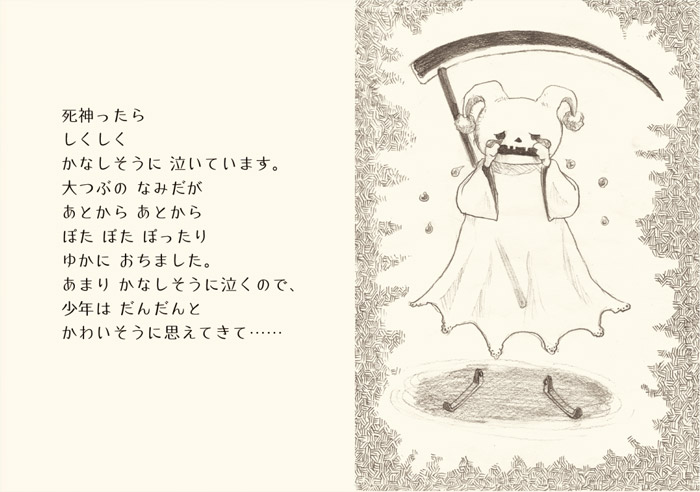 死神ったら
しくしく
かなしそうに 泣いています。
大つぶの なみだが
あとから あとから
ぼた ぼた ぼったり
ゆかに おちました。
あまり かなしそうに泣くので、
少年は だんだんと
かわいそうに思えてきて……